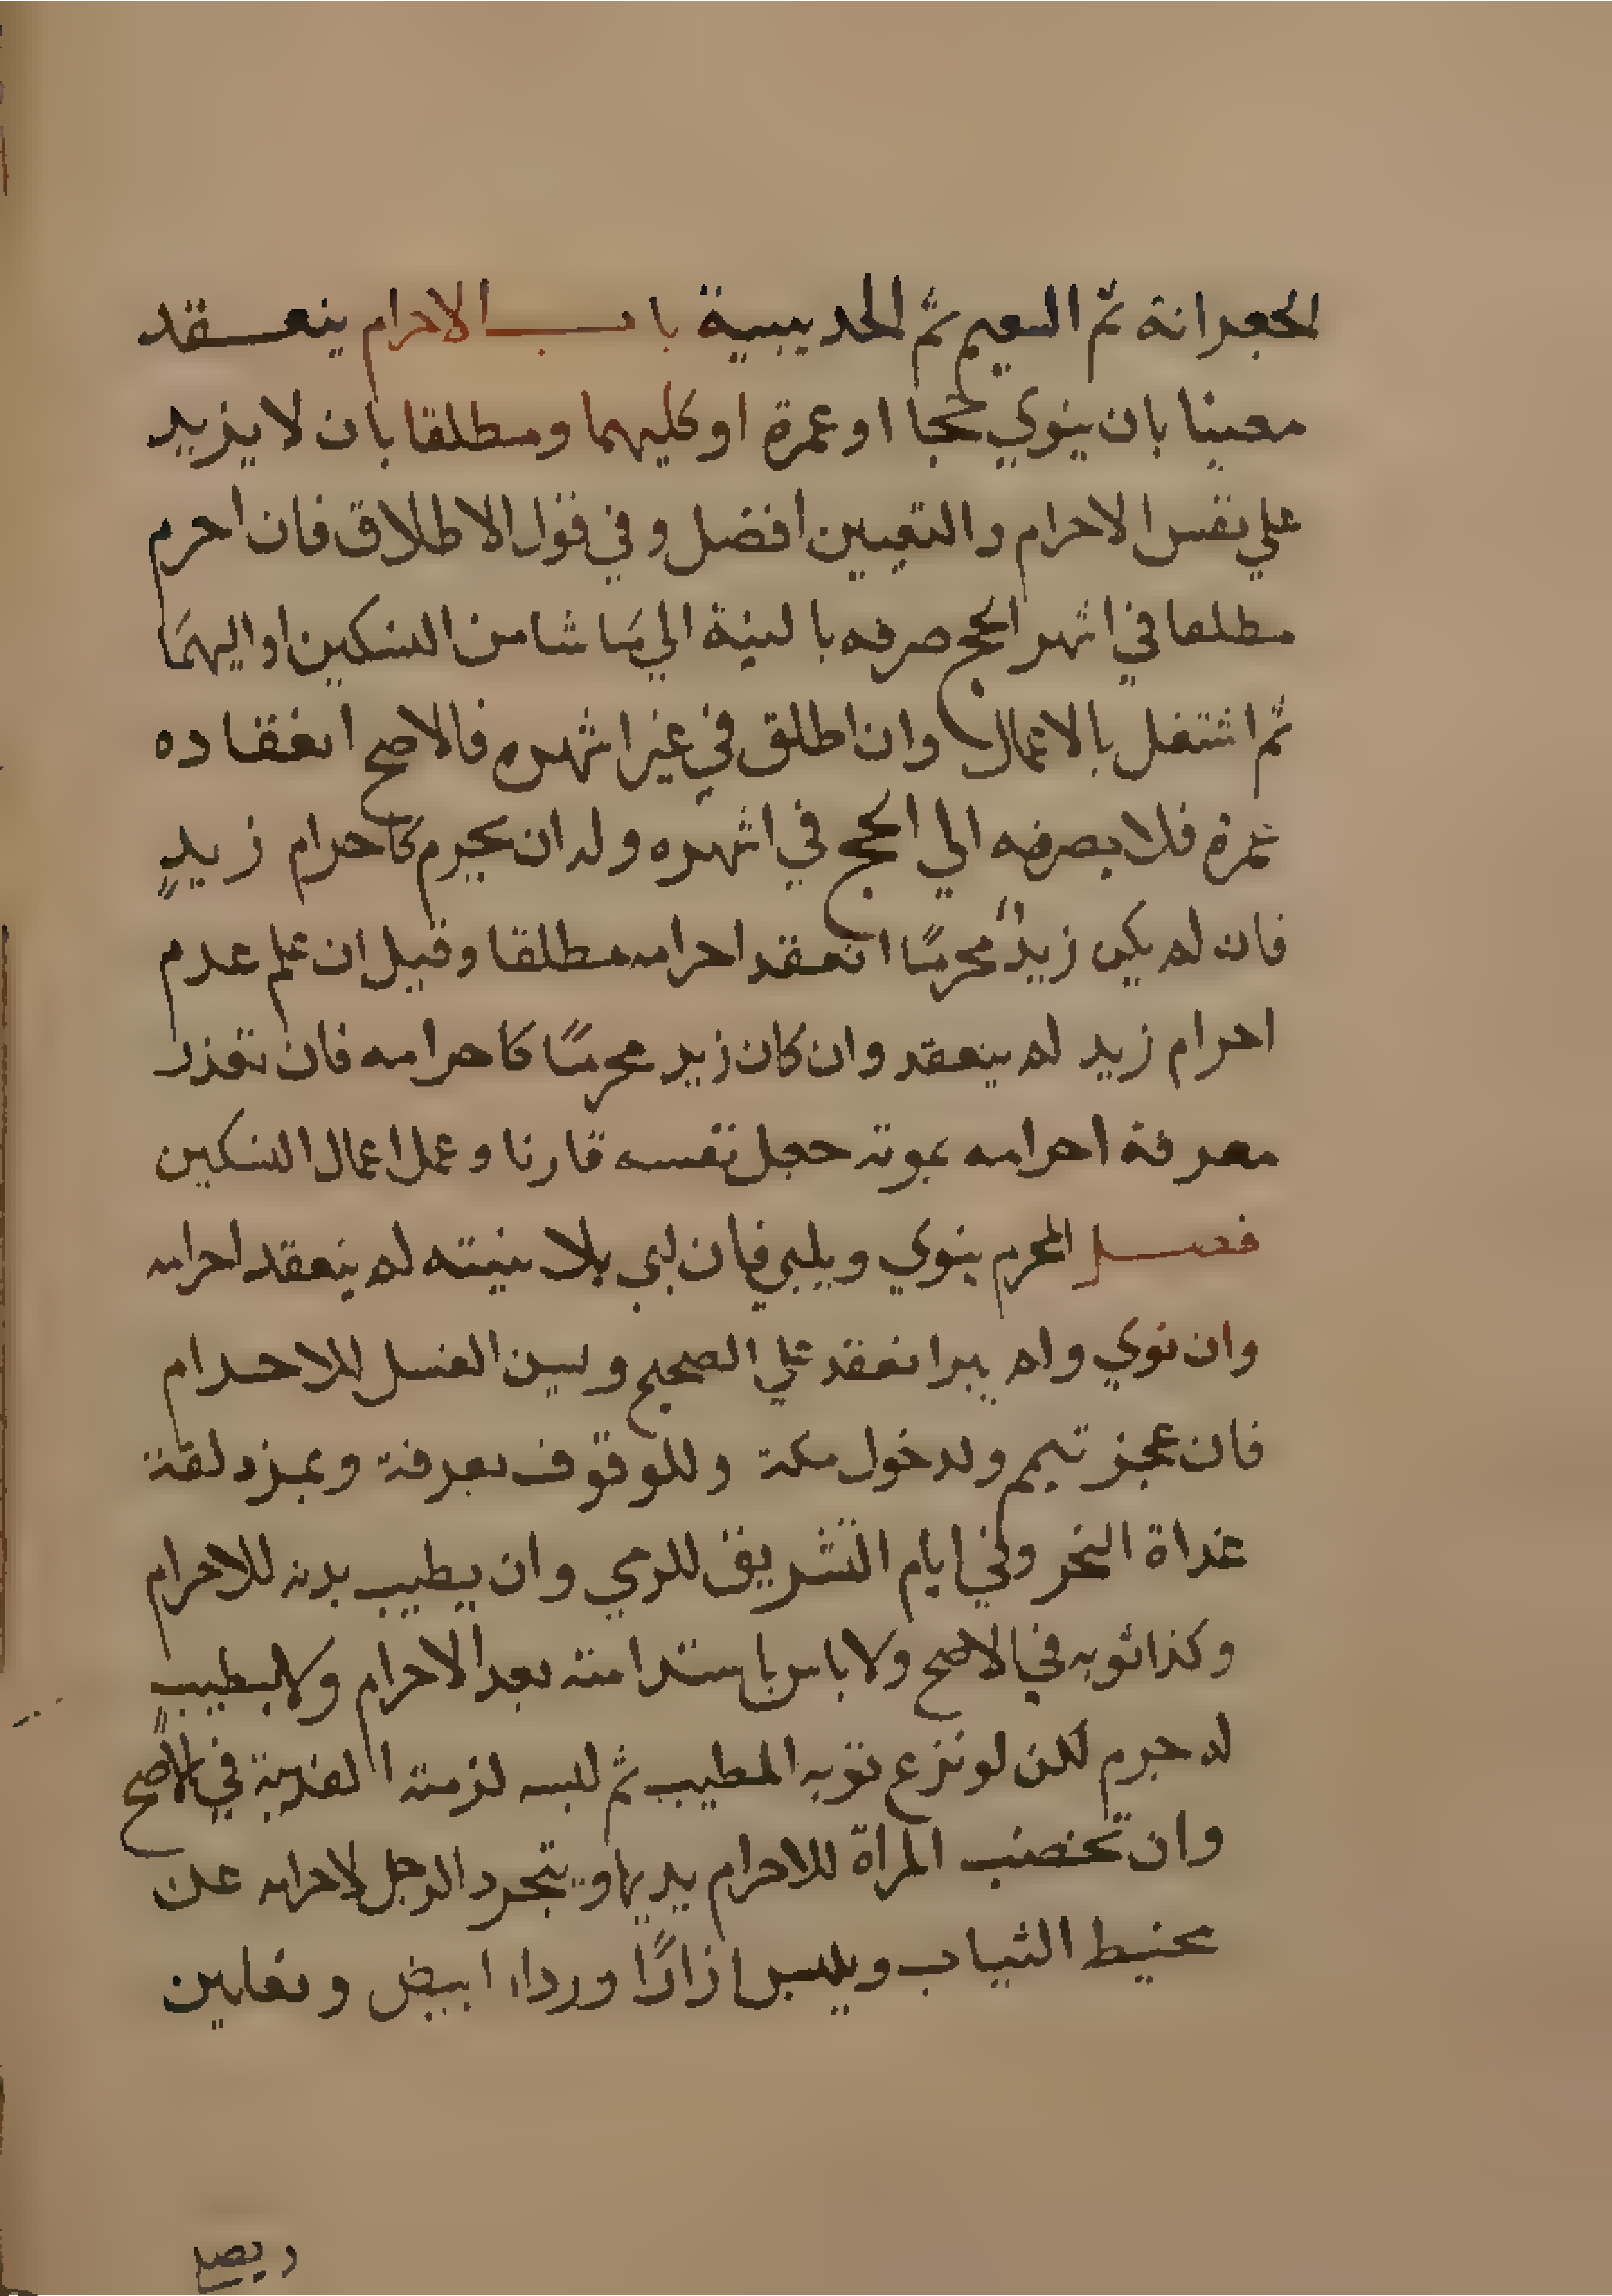 الجعرانة ثم التنعيم ثم الحديبية باب الاحرام ينعقد
معينا بان ينوي حجا او عمرة او كليهما ومطلقا بان لا يزيد
علي نفس الاحرام والتعيين افضل وفي قول الاطلاق فان احرم
مطلقا في اشهر الحج صرفه بالنية الي مَا شا من النسكين او اليهمَا
ثم اشتغل بالاعمال وان اطلق في غير اشهره فالاصح انعقاده
عمرة فلا يصرفه الي الحج في اشهره وله ان يحرم كاحرام زيدٍ
فان لم يكن زيدٌ محرمًا انعقد احرامه مطلقا وقيل ان علم عدم
احرام زيد لم ينعقد وان كان زيد محرمًا كاحرامه فان تعذر
معرفة احرامه بموته جعل نفسه قارنا وعمل اعمال النسكين
فصل المحرم ينوي ويلبي فان لبي بلا نيته لم ينعقد احرامه
وان نوي ولم يبر انعقد علي الصحيح ويسن الغسل للاحرام
فان عجز تيمم ولدخول مكة وللوقوف بعرفة وبمزدلفة
غداة النحر وفي ايام التشريق للرمي وان يطيب بدنه للاحرام
وكذا ثوبه في الاصح ولا باس باستدامته بعد الاحرام ولا بطيبٍ
له جرم لكن لو نزع ثوبه المطيب ثم لبسه لزمته الفدية في الاصح
وان تخضب المراة للاحرام يديها ويتجرد الرجل لاحرامه عن
مخيط الثياب ويلبس ازارًا ورداء ابيض ونعلين
ويصلي